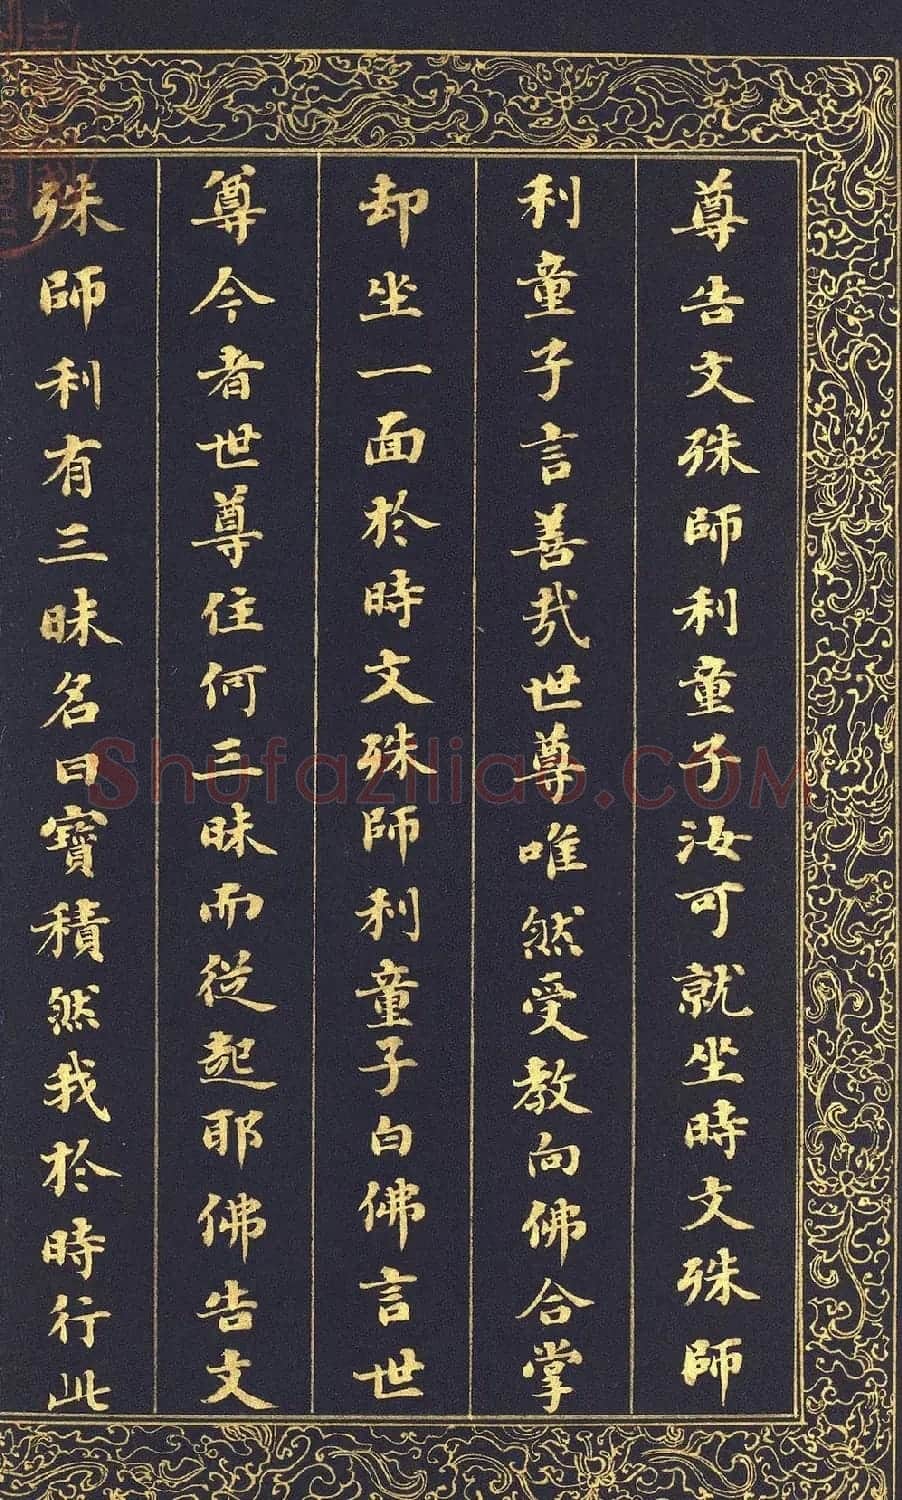 尊告文殊師利童子汝可就坐時文殊師
利童子言善哉世尊唯然受教向佛合掌
却坐一面於時文殊師利童子白佛言世
尊今者世尊住何三昧而從起耶佛告文
殊師利有三昧名曰寶積然我於時行此
Shufaziliao.COM